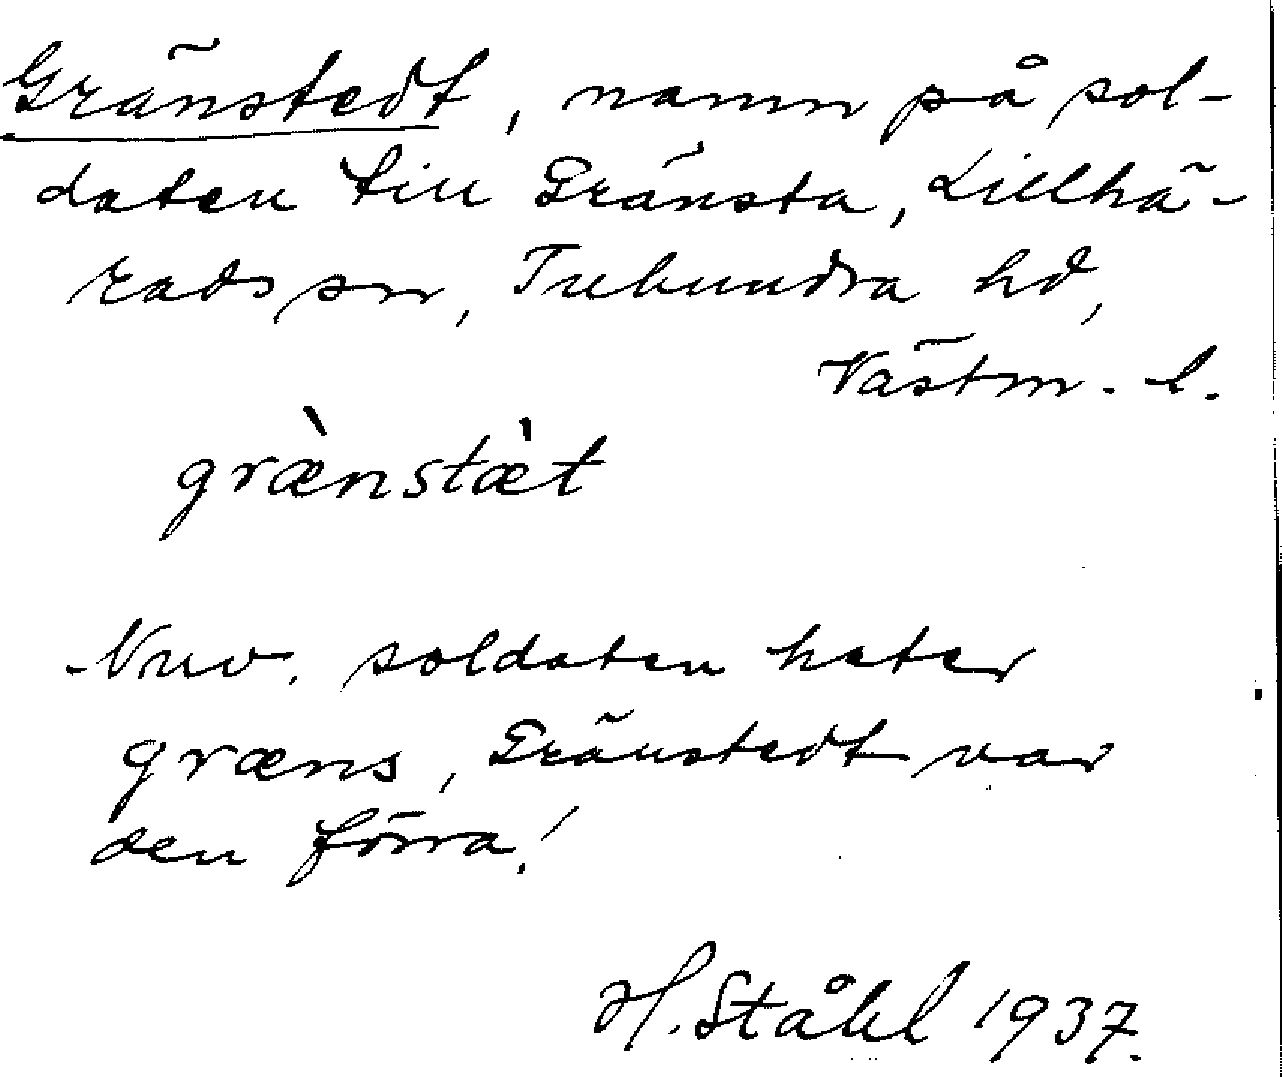 Gränstedt, namn på sol-
daten till Gränsta, Lillhä-
rads sn, Tuhundra hd,
Västm. l.
græ̀nstæ̀t
Nuv. soldaten heter
græns, Gränstedt var
den förra!
H. Ståhl 1937.